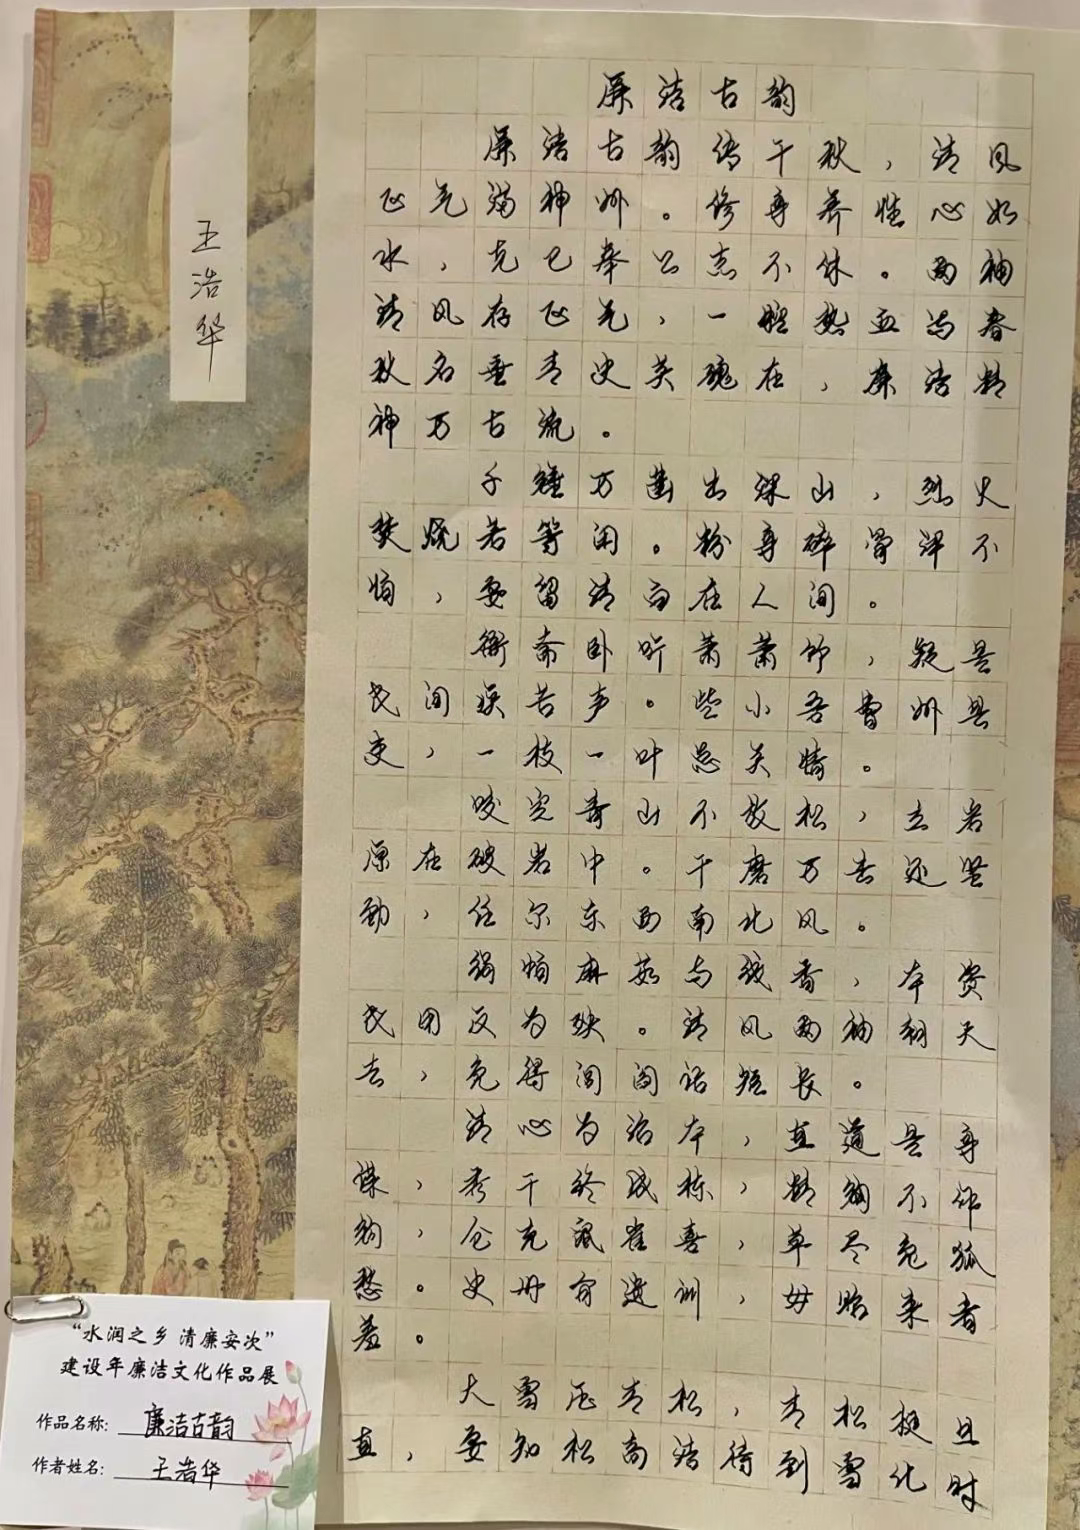 廉洁古韵
廉洁古韵传千秋，清风
正气满神州。修身养性心如
水，克己奉公志不休。两袖
清风存正气，一腔热血写春
秋名垂青史英魂在，廉洁精
神万古流。
千锤万凿出深山，烈火
焚烧若等闲。粉身碎骨浑不
怕，要留清白在人间。
衙斋卧听萧萧竹，疑是
民间疾苦声。些小吾曹州县
吏，一枝一叶总关情。
咬定青山不放松，立岩
原在破岩中。千磨万击还坚
劲，任尔东西南北风。
绢帕麻菇与线香，本资
民用反为殃。清风两袖朝天
去，免得闾阎话短长。
清心为治本，直道是身
谋，秀干终成栋，精钢不作
钩，仓充鼠雀喜，草尽兔狐
愁。史册有遗训，毋贻来者
羞。
大雪压青松，青松挺且
直，要知松高洁待到雪化时
王浩华
“水润之乡 清廉安次”
建设年廉洁文化作品展
作品名称：廉洁古韵
作者姓名：王浩华